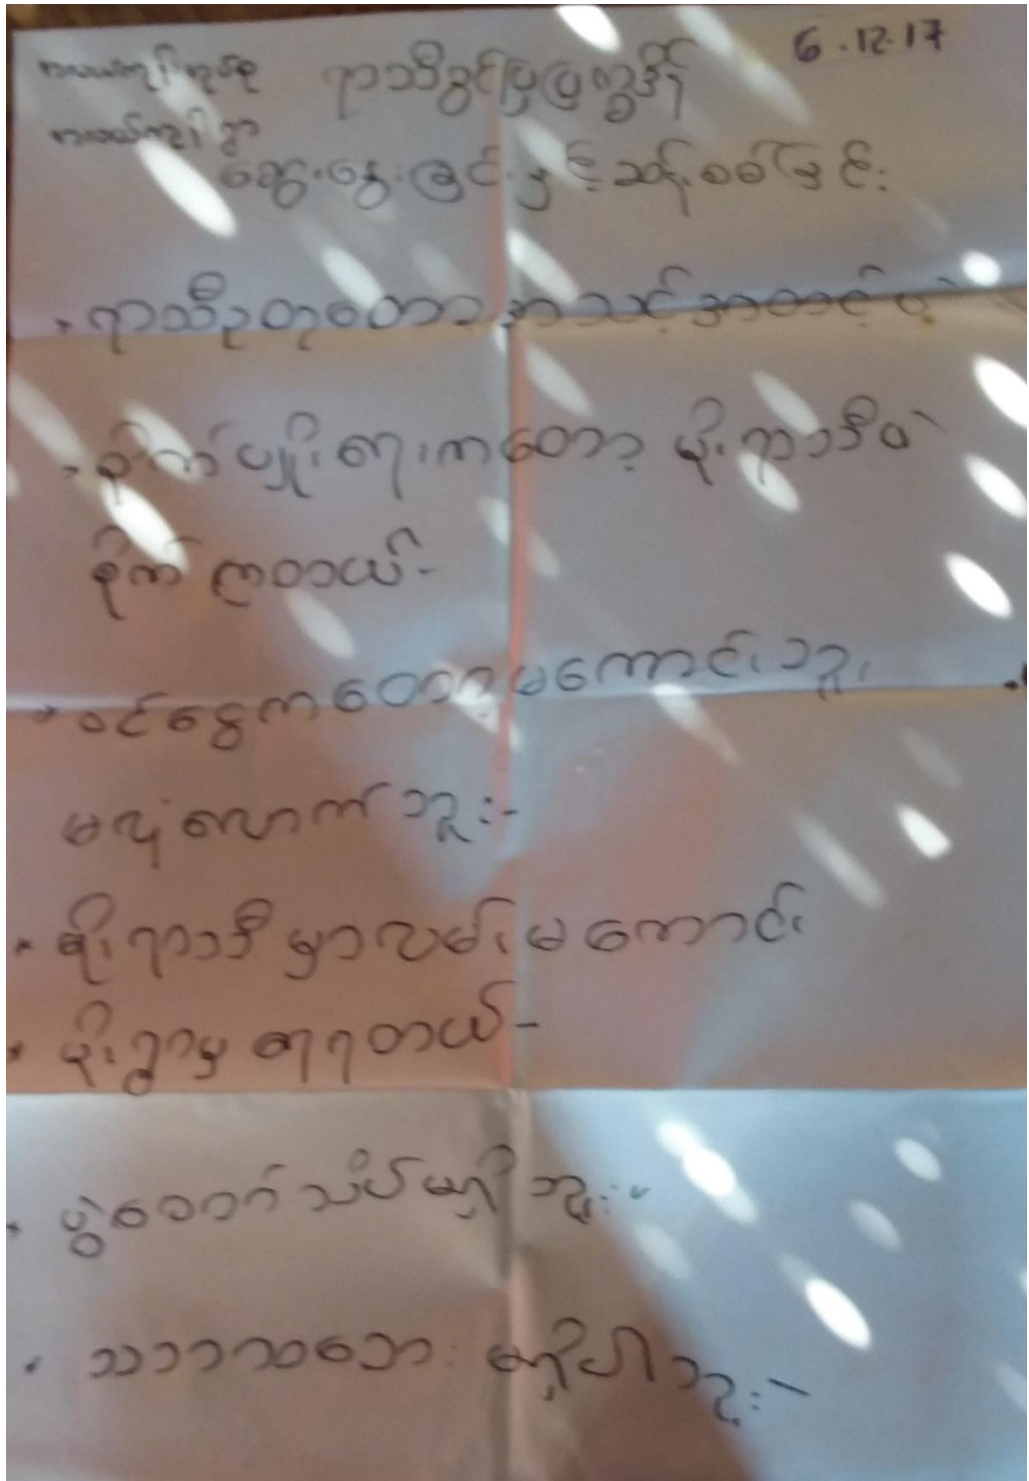 6.12.17
ရာသီခွင်ပြပြက္ခဒိန်
ဆွေးနွေးခြင်းနှင့်ဆန်းစစ်ခြင်း
• ရာသီဥတုတော့အသင့်အတင့်ပဲ
• စိုက်ပျိုးရေးကတော့ မိုးရာသီပဲ
စိုက်ရတယ်-
• ဝင်ငွေကတော့မကောင်းဘူး
မလုံလောက်ဘူး-
• မိုးရာသီမှာလမ်းမကောင်း
• မိုးရွာမှ ရေရတယ်-
• ပွဲတော်သိပ်မရှိဘူး-
• သဘာဝဘေး မရှိပါဘူး-